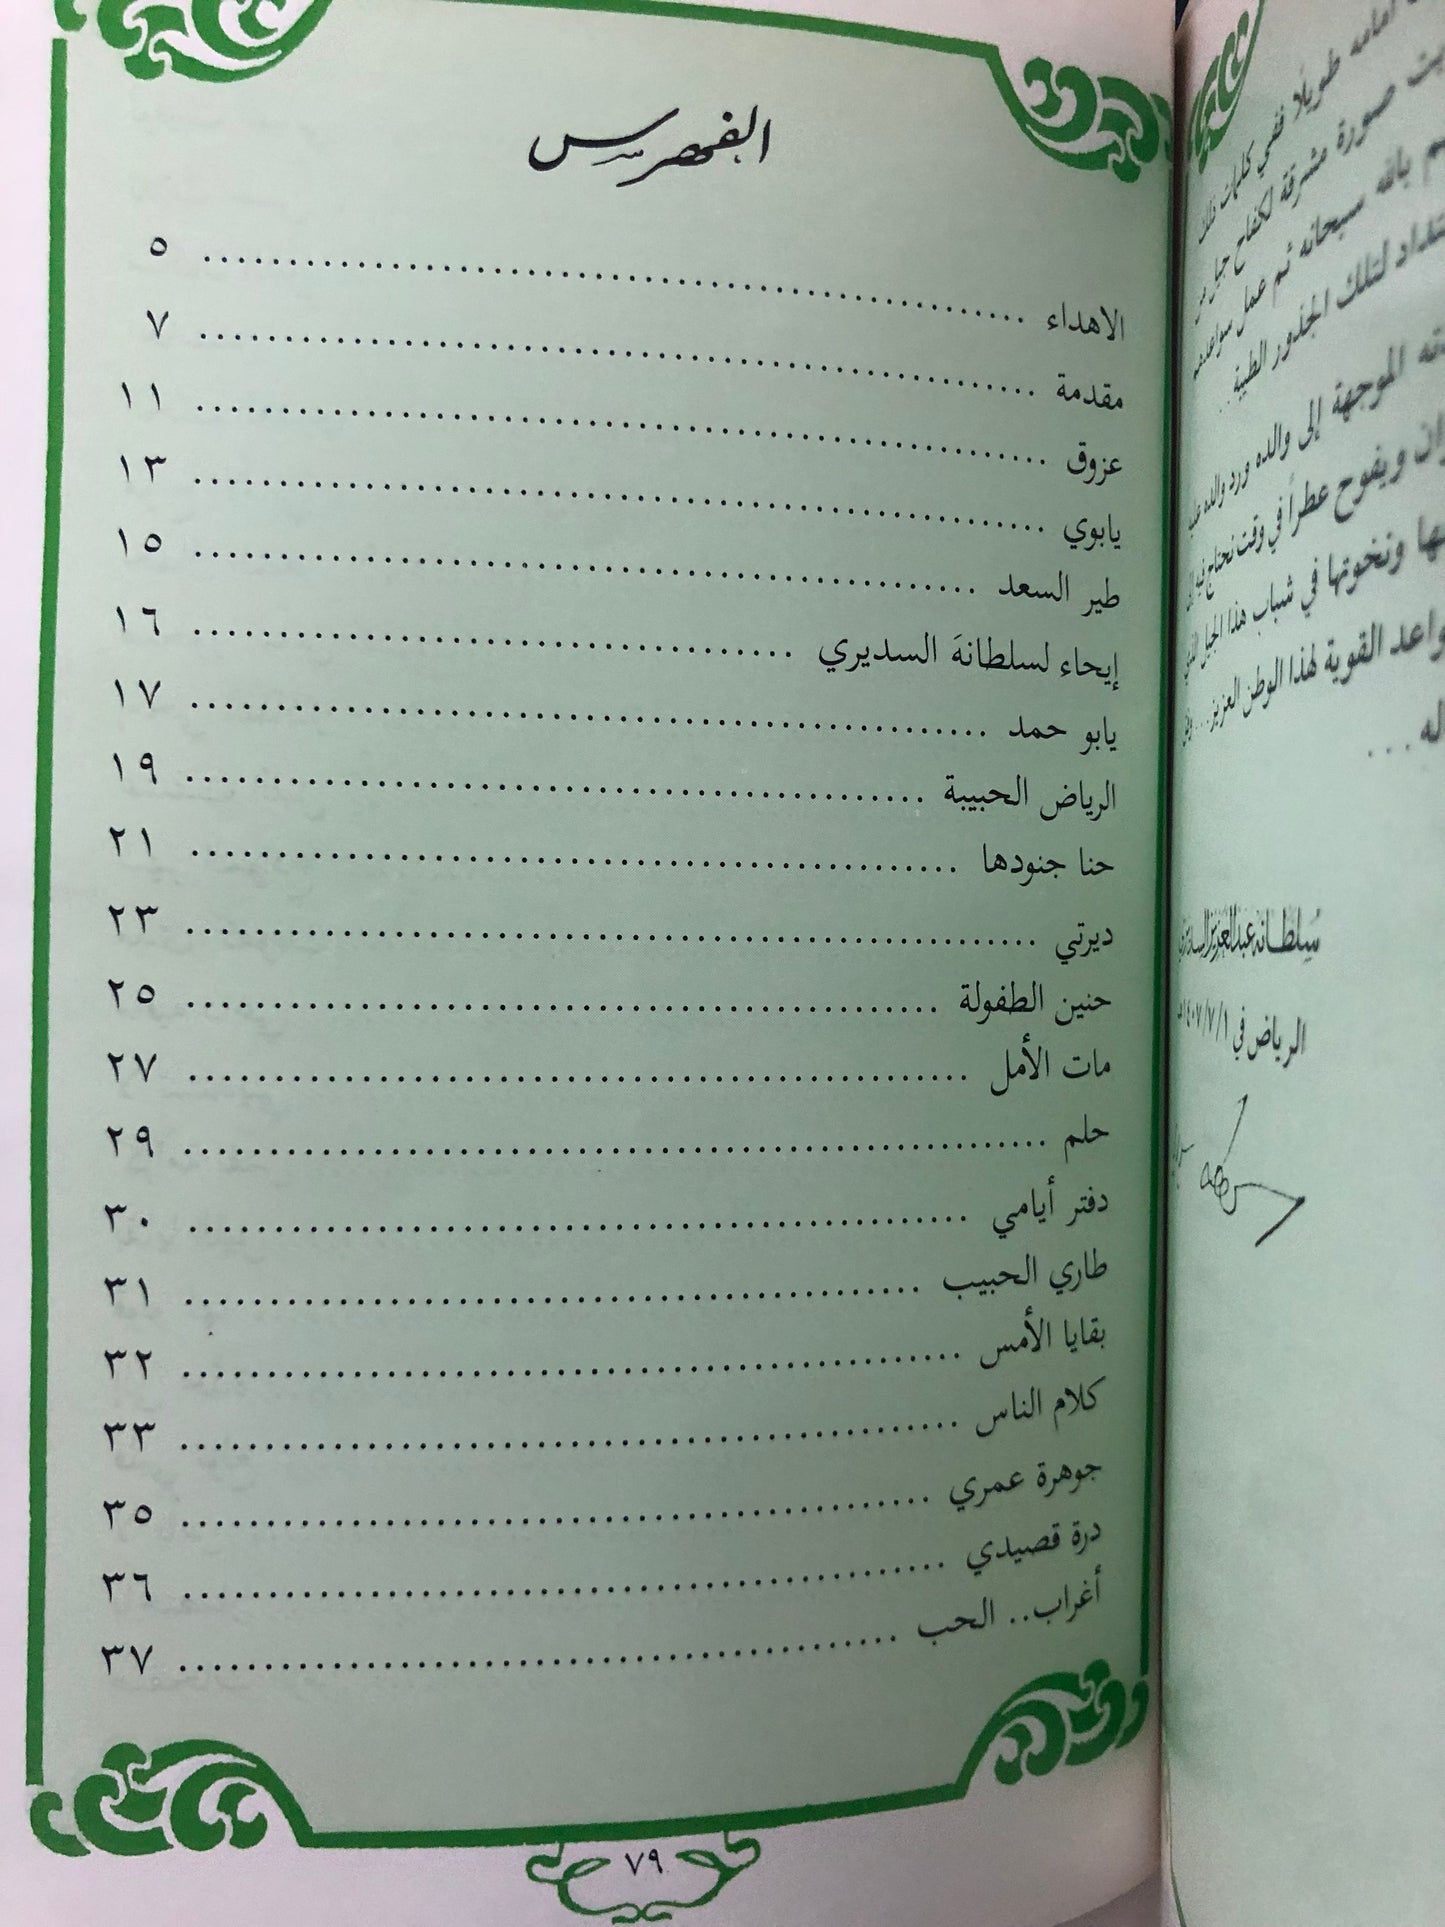 الفهرس
الاهداء .......... ٥
مقدمة .......... ٧
عزوق .......... ١١
يابوي .......... ١٣
طير السعد .......... ١٥
إيحاء لسلطانهَ السديري .......... ١٦
يابو حمد .......... ١٧
الرياض الحبيبة .......... ١٩
حنا جنودها .......... ٢١
ديرتي .......... ٢٣
حنين الطفولة .......... ٢٥
مات الأمل .......... ٢٧
حلم .......... ٢٩
دفتر أيامي .......... ٣٠
طاري الحبيب .......... ٣١
بقايا الأمس .......... ٣٢
كلام الناس .......... ٣٣
جوهرة عمري .......... ٣٥
درة قصيدي .......... ٣٦
أغراب.. الحب .......... ٣٧
٧٩
أمامه طويلًا ففي كلمات تلك
صورة مشرقة لكفاح جيل من
بالله سبحانه ثم عمل سواعدهم
لتلك الجذور الطيبة ...
الموجهة إلى والده ورد والده عليه
ويفوح عطراً في وقت نحتاج فيه إلى
ونخوتها في شباب هذا الجيل الذي
القوية لهذا الوطن العزيز...
له ...
سلطانه عبدالعزيز السديري
الرياض في ١٤٠٧/٧/١هـ